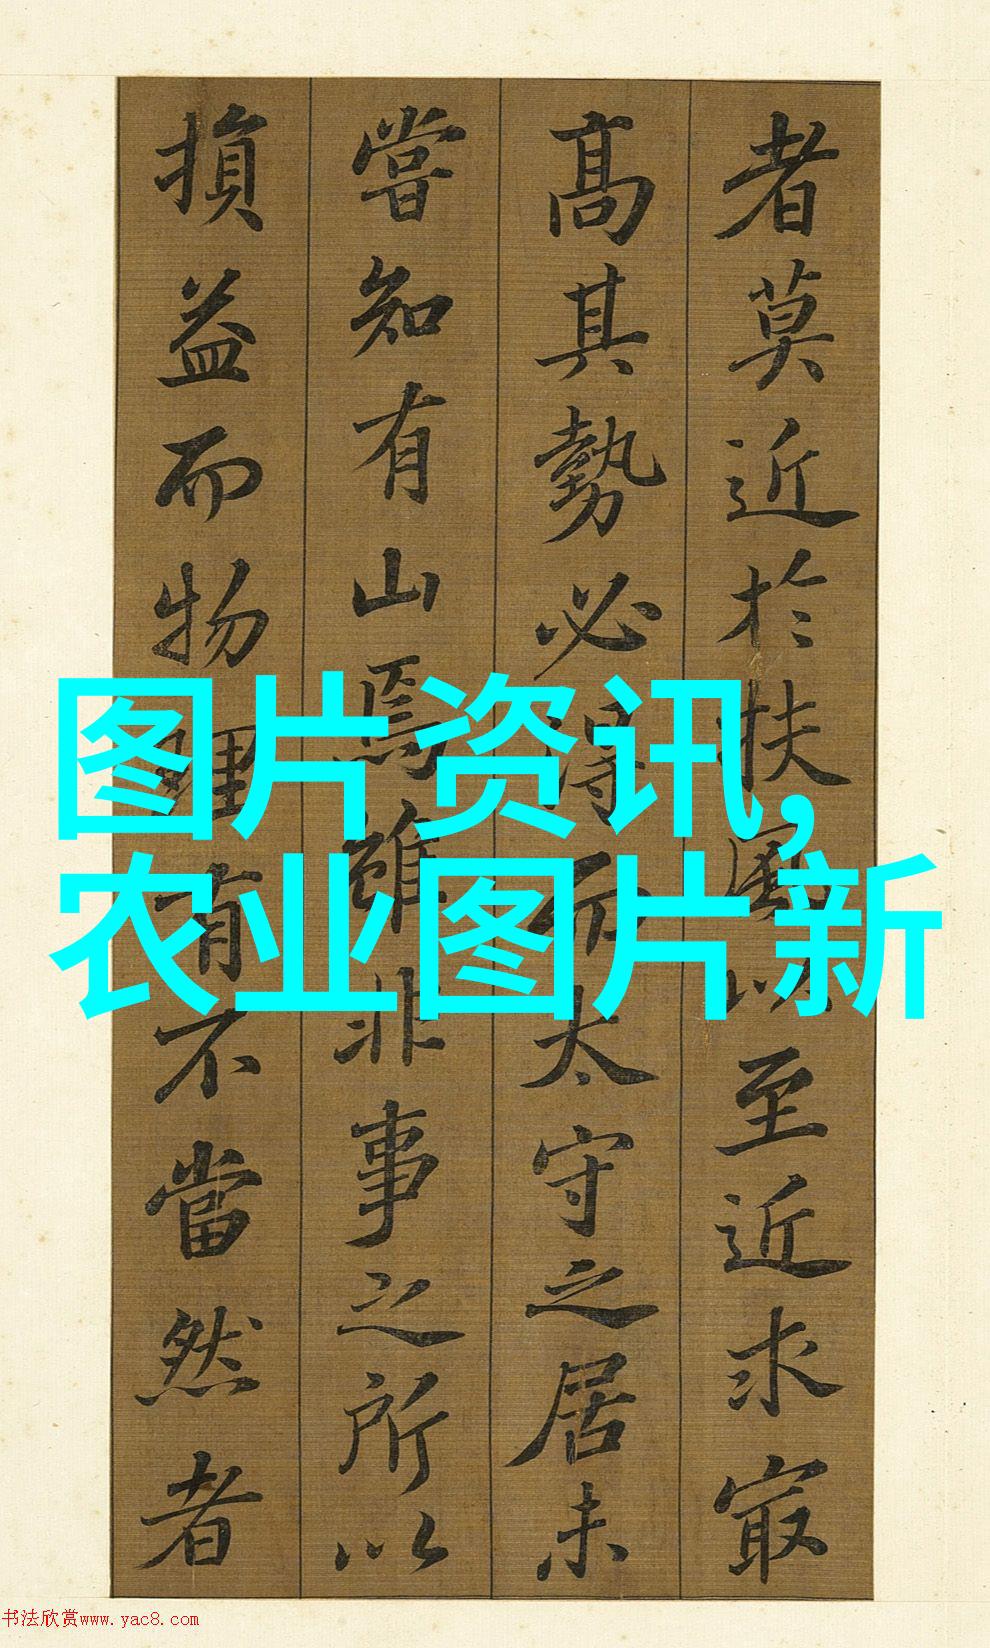 者莫近於扶風以至近求最
高其勢必得而太守之居未
嘗知有山焉雖非事之所以
損益而物理有不當然者
图片资讯,
农业图片新
书法欣赏www.yac8.com